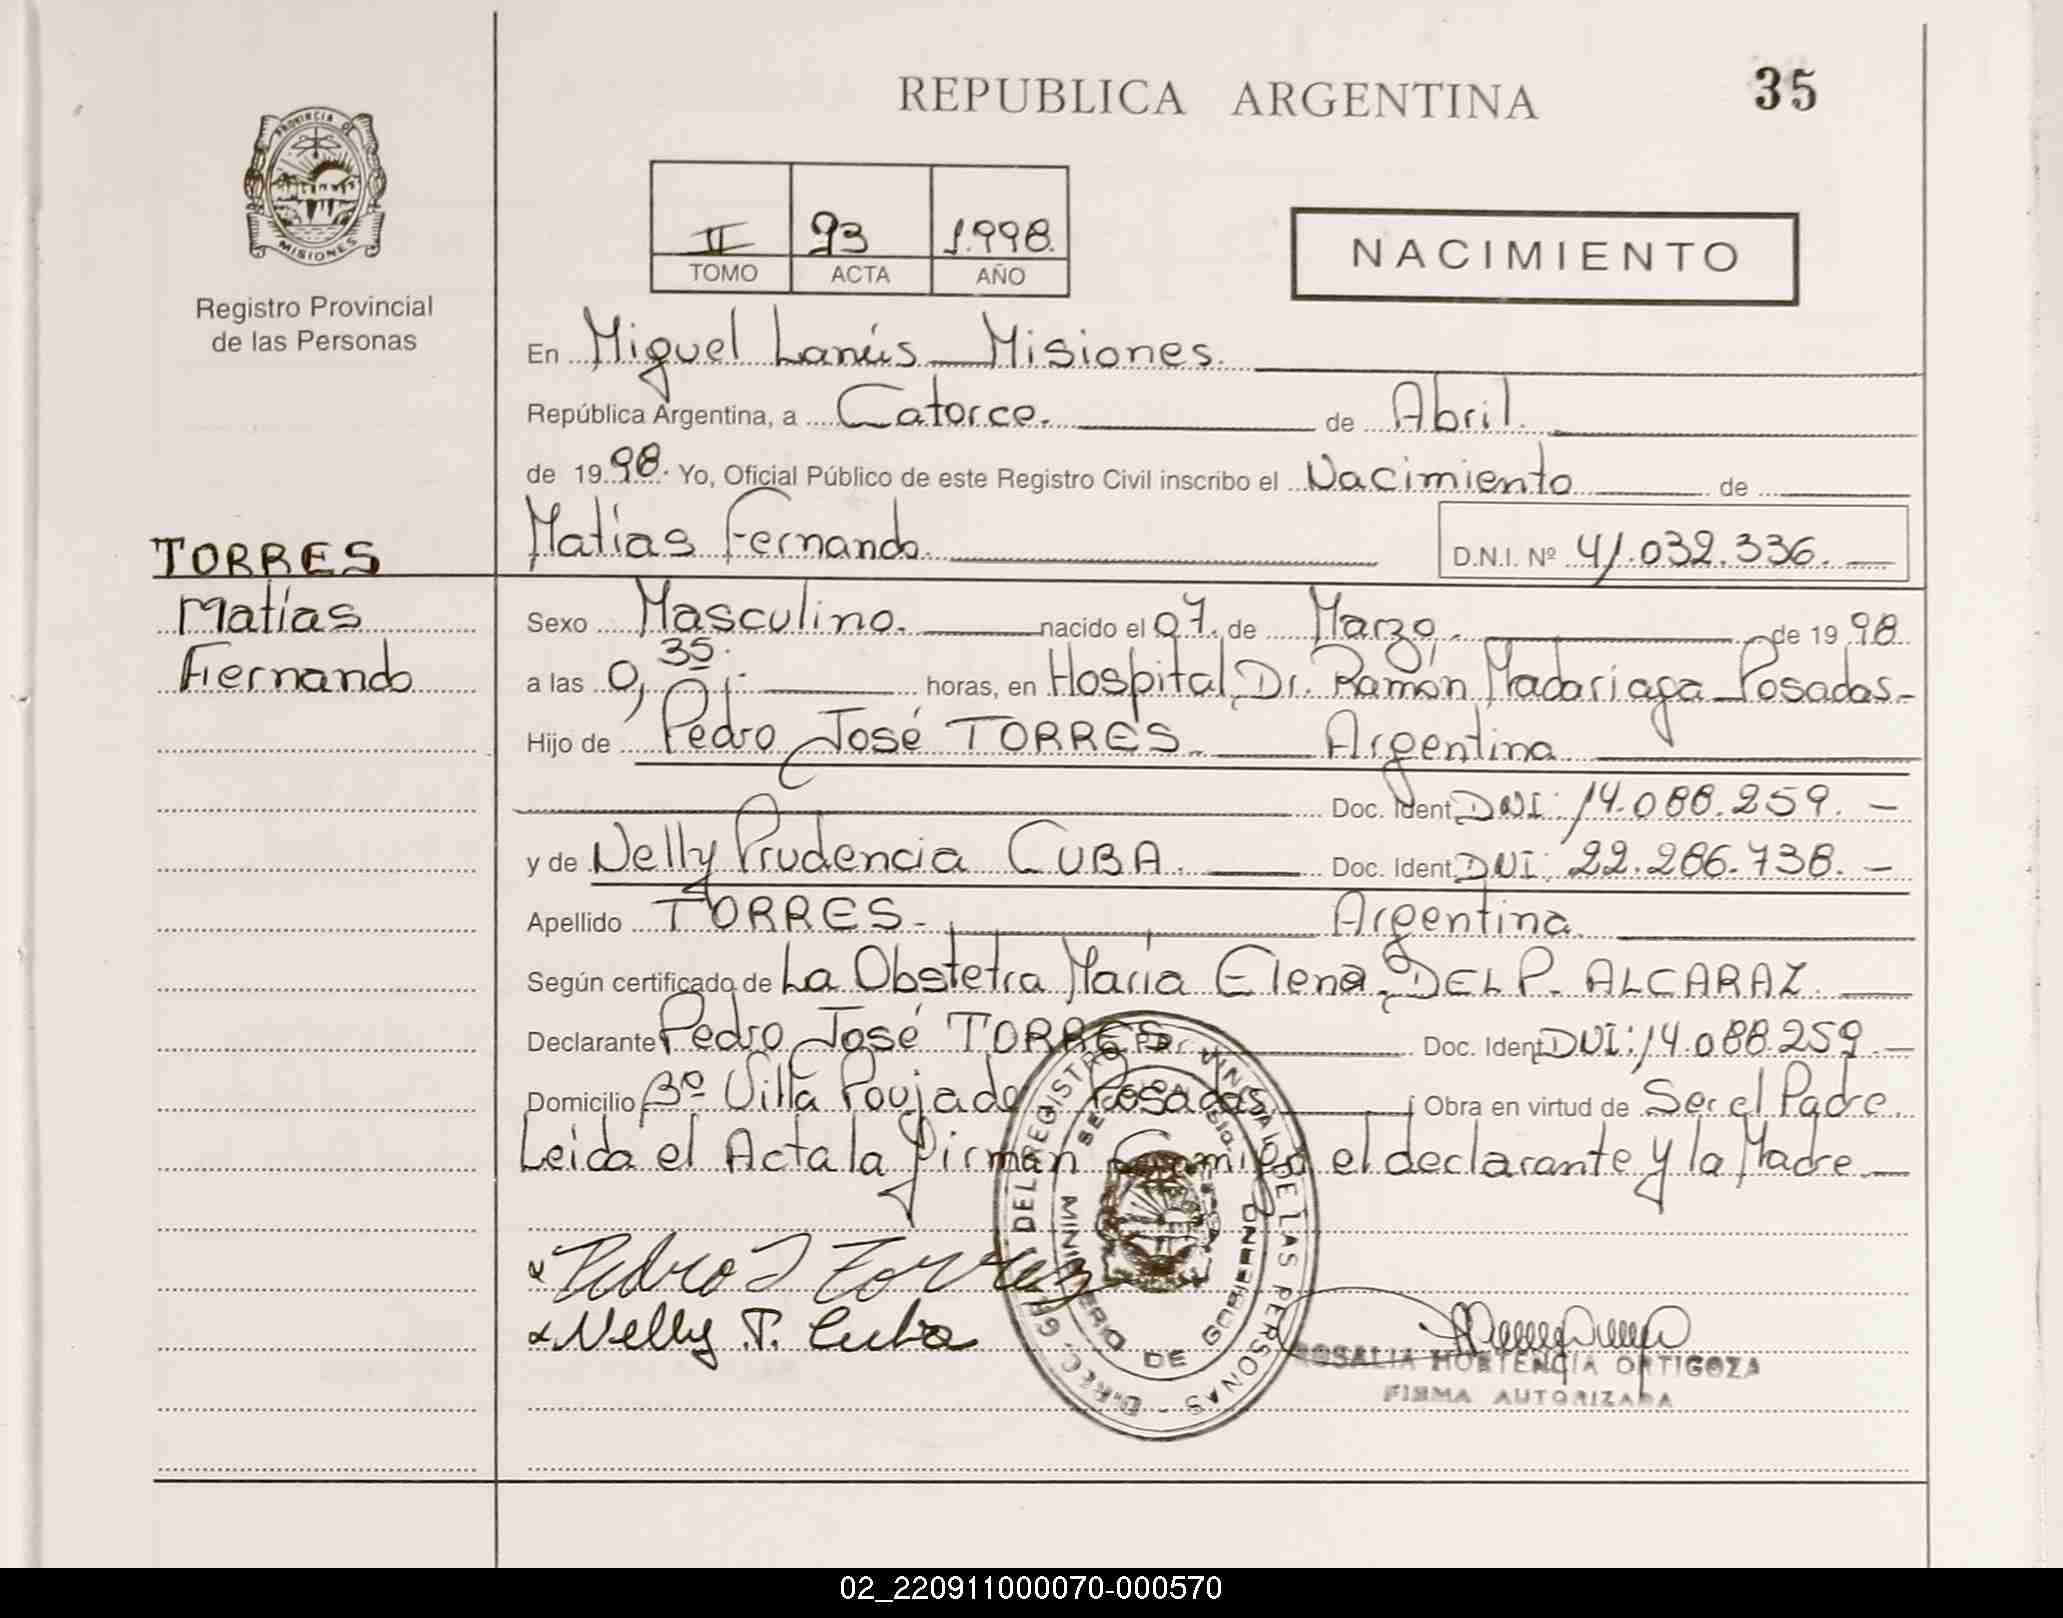 REPUBLICA ARGENTINA
35
PROVINCIA DE
MISIONES
Registro Provincial
de las Personas
II 93 1.998.
TOMO ACTA AÑO
NACIMIENTO
En Miguel Lanús Misiones.
República Argentina, a Catorce. de Abril.
de 19 98. Yo, Oficial Público de este Registro Civil inscribo el Nacimiento de
Matías Fernando. D.N.I. Nº 41.032.336.
TORRES
Matías
Fernando
Sexo Masculino. nacido el 07. de Marzo. de 19 98
a las 0,35. horas, en Hospital Dr. Ramón Madariaga Posadas
Hijo de Pedro José TORRES Argentina
Doc. Ident. DNI: 14.088.259.
y de Nelly Prudencia CUBA. Doc. Ident. DNI: 22.286.738.
Apellido TORRES Argentina.
Según certificado de La Obstetra María Elena DEL P. ALCARAZ
Declarante Pedro José TORRES Doc. Ident. DNI: 14.088.259
Domicilio Bº Villa Poujade Posadas Obra en virtud de Ser el Padre
Leida el Acta la firman conmigo el declarante y la Madre
Pedro J Torres
Nelly P. Cuba
DIREC. GRAL. DEL REGISTRO PROVINCIAL DE LAS PERSONAS
MINISTERIO DE GOBIERNO
ROSALIA HORTENCIA ORTIGOZA
FIRMA AUTORIZADA
02_220911000070-000570